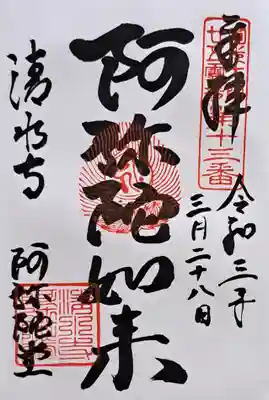 奉拝
令和三年
三月二十八日
阿弥陀如来
清水寺
阿弥陀堂